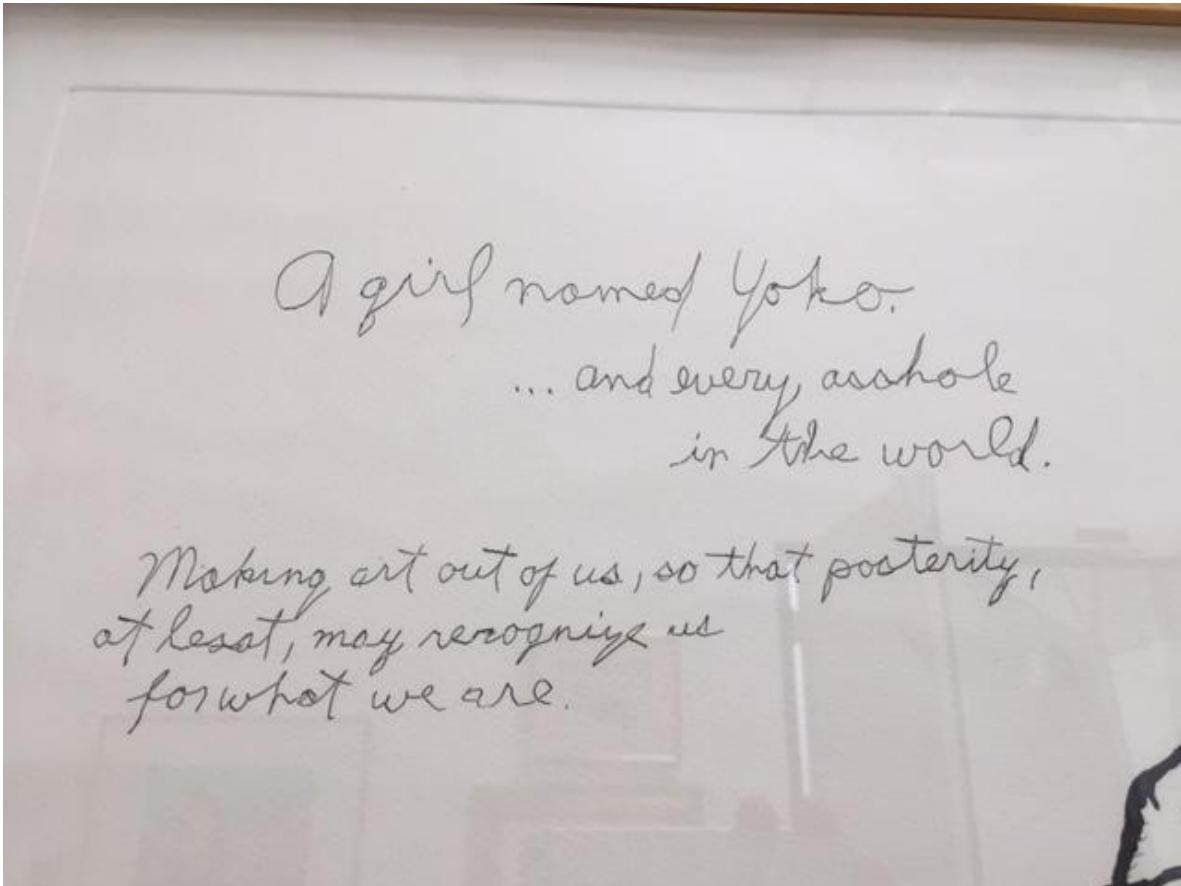 A girl named Yoko.
... and every asshole
in the world.
Making art out of us, so that posterity,
at lesat, may recognize us
for what we are.